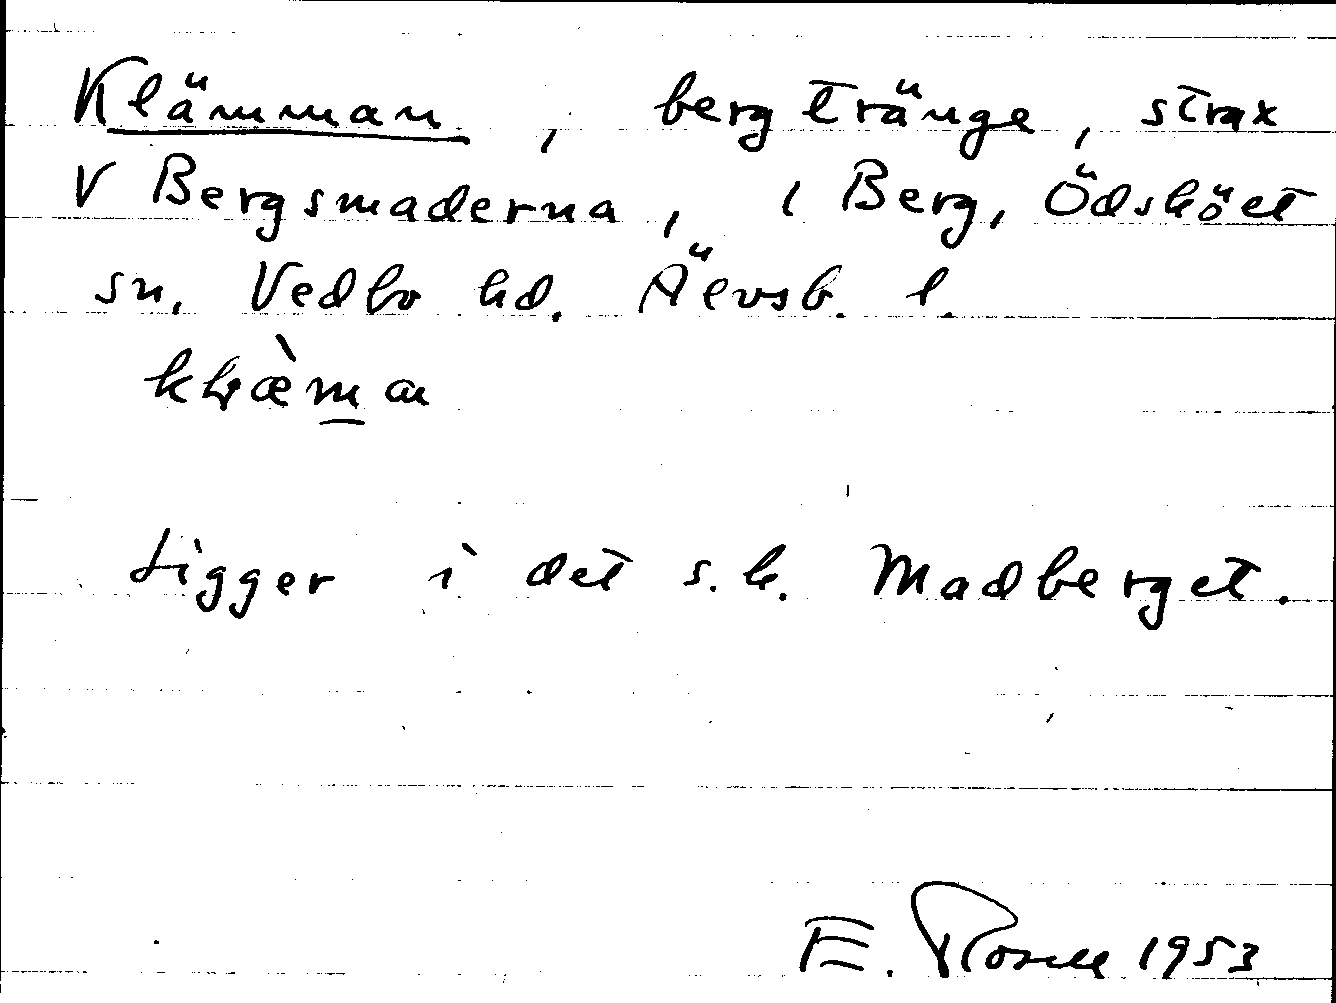 Klämman, bergtränge, strax
V Bergsmaderna, i Berg, Ödsköet
sn, Vedbo hd. Älvsb. l.
Ligger i det s.k. Madberget.
E. Rosell 1953